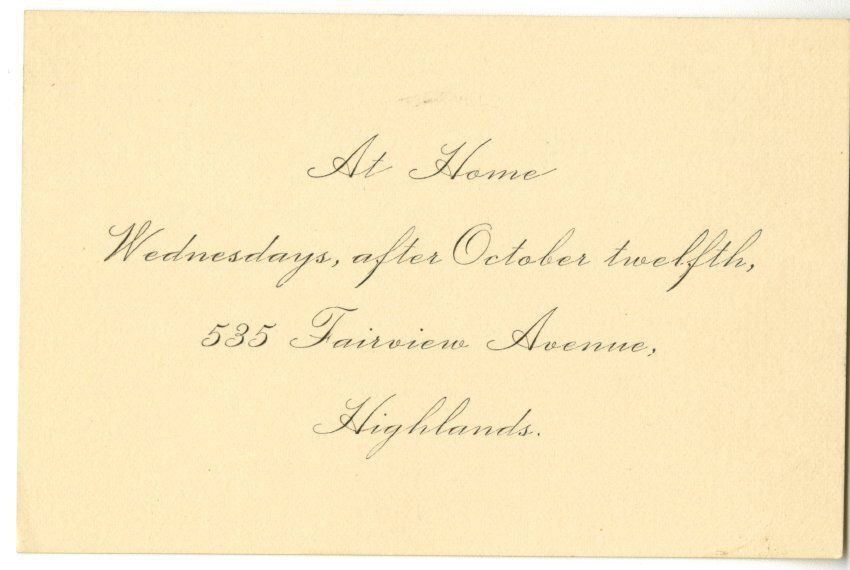 At Home
Wednesdays, after October twelfth,
535 Fairview Avenue,
Highlands.